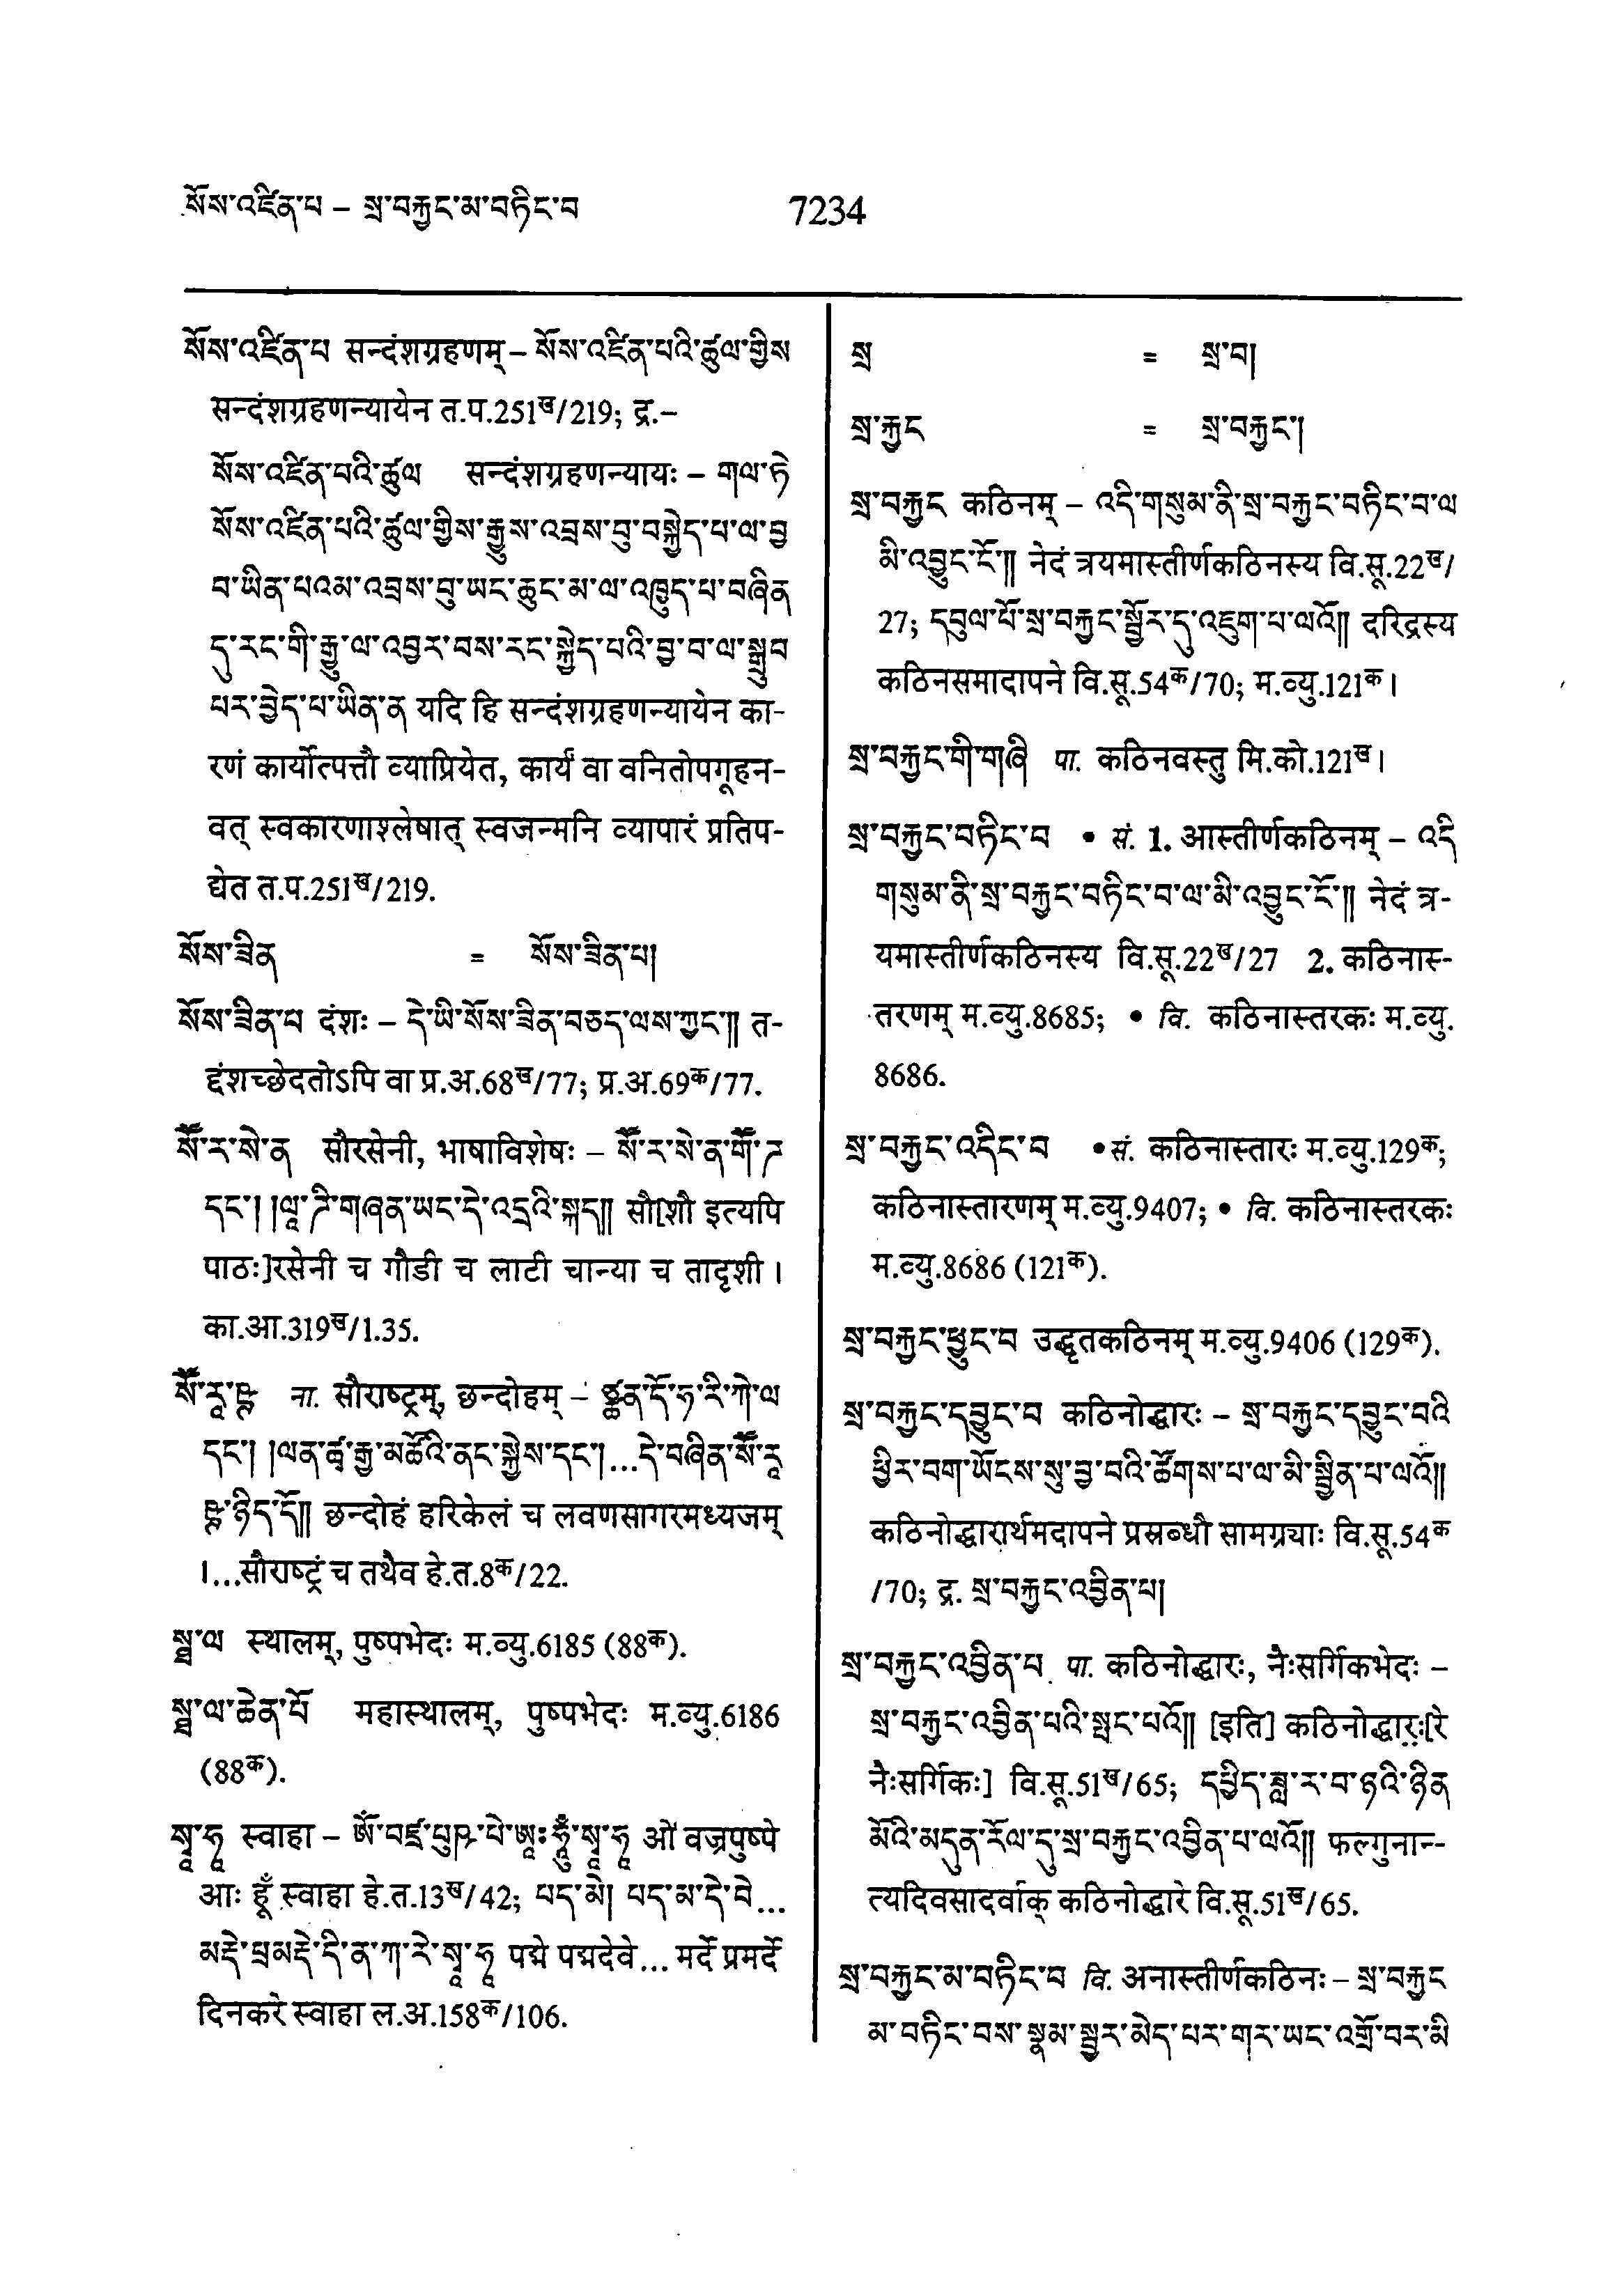 སོས་འཛིན་པ – སྲ་བརྐྱང་མ་བཏིང་བ
7234
སོས་འཛིན་པ सन्दंशग्रहणम् – སོས་འཛིན་པའི་ཚུལ་གྱིས
सन्दंशग्रहणन्यायेन त.प.251ख/219; द्र.–
སོས་འཛིན་པའི་ཚུལ सन्दंशग्रहणन्यायः – གལ་ཏེ
སོས་འཛིན་པའི་ཚུལ་གྱིས་རྒྱུས་འབྲས་བུ་བསྐྱེད་པ་ལ་བྱ
བ་ཡིན་པའམ་འབྲས་བུ་ཡང་ཆུང་མ་ལ་འཁྱུད་པ་བཞིན
དུ་རང་གི་རྒྱུ་ལ་འབྱར་བས་རང་སྐྱེད་པའི་བྱ་བ་ལ་སྒྲུབ
པར་བྱེད་པ་ཡིན་ན यदि हि सन्दंशग्रहणन्यायेन का-
रणं कार्योत्पत्तौ व्याप्रियेत, कार्यं वा वनितोपगूहन-
वत् स्वकारणाश्लेषात् स्वजन्मनि व्यापारं प्रतिप-
द्येत त.प.251ख/219.
སོས་ཟིན = སོས་ཟིན་པ།
སོས་ཟིན་པ दंशः – དེ་ཡི་སོས་ཟིན་བཅད་ལས་ཀྱང་།། त-
द्दंशच्छेदतोऽपि वा प्र.अ.68ख/77; प्र.अ.69क/77.
སཽ་ར་སེ་ན सौरसेनी, भाषाविशेषः – སཽ་ར་སེ་ན་གཽ་ཌ
དང་། །ལཱ་ཊི་གཞན་ཡང་དེ་འདྲའི་སྐད།། सौ[शौ इत्यपि
पाठः]रसेनी च गौडी च लाटी चान्या च तादृशी।
का.आ.319ख/1.35.
སཽ་རཱ་ཥྚ ना. सौराष्ट्रम्, छन्दोहम् – ཙྪན་དོ་ཧ་རི་ཀེ་ལ
དང་། །ལན་ཚྭ་རྒྱ་མཚོའི་ནང་སྐྱེས་དང་།...དེ་བཞིན་སཽ་རཱ
ཥྚ་ཉིད་དོ།། छन्दोहं हरिकेलं च लवणसागरमध्यजम्
।...सौराष्ट्रं च तथैव हे.त.8क/22.
སྠཱ་ལ स्थालम्, पुष्पभेदः म.व्यु.6185 (88क).
སྠཱ་ལ་ཆེན་པོ महास्थालम्, पुष्पभेदः म.व्यु.6186
(88क).
སྭཱ་ཧཱ स्वाहा – ཨོཾ་བཛྲ་པུཥྤ་པེ་ཨཱཿཧཱུྃ་སྭཱ་ཧཱ ओं वज्रपुष्पे
आः हूँ स्वाहा हे.त.13ख/42; པད་མེ། པད་མ་དེ་བེ...
མརྡེ་པྲམརྡེ་དི་ན་ཀ་རེ་སྭཱ་ཧཱ पद्मे पद्मदेवे... मर्दे प्रमर्दे
दिनकरे स्वाहा ल.अ.158क/106.
སྲ = སྲ་བ།
སྲ་རྐྱང = སྲ་བརྐྱང་།
སྲ་བརྐྱང कठिनम् – འདི་གསུམ་ནི་སྲ་བརྐྱང་བཏིང་བ་ལ
མི་འབྱུང་ངོ་།། नेदं त्रयमास्तीर्णकठिनस्य वि.सू.22ख/
27; དབུལ་པོ་སྲ་བརྐྱང་སྦྱོར་དུ་འཇུག་པ་ལའོ།། दरिद्रस्य
कठिनसमादापने वि.सू.54क/70; म.व्यु.121क।
སྲ་བརྐྱང་གི་གཞི पा. कठिनवस्तु मि.को.121ख।
སྲ་བརྐྱང་བཏིང་བ • सं. 1. आस्तीर्णकठिनम् – འདི
གསུམ་ནི་སྲ་བརྐྱང་བཏིང་བ་ལ་མི་འབྱུང་ངོ་།། नेदं त्र-
यमास्तीर्णकठिनस्य वि.सू.22ख/27 2. कठिनास्-
तरणम् म.व्यु.8685; • वि. कठिनास्तरकः म.व्यु.
8686.
སྲ་བརྐྱང་འདིང་བ • सं. कठिनास्तारः म.व्यु.129क;
कठिनास्तारणम् म.व्यु.9407; • वि. कठिनास्तरकः
म.व्यु.8686 (121क).
སྲ་བརྐྱང་ཕྱུང་བ उद्धृतकठिनम् म.व्यु.9406 (129क).
སྲ་བརྐྱང་དབྱུང་བ कठिनोद्धारः – སྲ་བརྐྱང་དབྱུང་བའི
ཕྱིར་བག་ཡོངས་སུ་བྱ་བའི་ཚོགས་པ་ལ་མི་སྦྱིན་པ་ལའོ།།
कठिनोद्धारार्थमदापने प्रस्रब्धौ सामग्र्याः वि.सू.54क
/70; द्र. སྲ་བརྐྱང་འབྱིན་པ།
སྲ་བརྐྱང་འབྱིན་པ पा. कठिनोद्धारः, नैःसर्गिकभेदः –
སྲ་བརྐྱང་འབྱིན་པའི་སྤང་པའོ།། [इति] कठिनोद्धारः[रे
नैःसर्गिकः] वि.सू.51ख/65; དཔྱིད་ཟླ་ར་བ་ཉའི་ཉིན
མོའི་མདུན་རོལ་དུ་སྲ་བརྐྱང་འབྱིན་པ་ལའོ།། फल्गुनान्-
त्यदिवसादर्वाक् कठिनोद्धारे वि.सू.51ख/65.
སྲ་བརྐྱང་མ་བཏིང་བ वि. अनास्तीर्णकठिनः – སྲ་བརྐྱང
མ་བཏིང་བས་སྣམ་སྦྱར་མེད་པར་གར་ཡང་འགྲོ་བར་མི